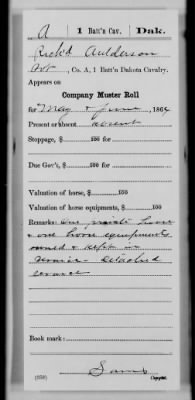 A | 1 Batt'n Cav. | Dak.
Rich'd Aulderson
Pvt., Co. A, 1 Batt'n Dakota Cavalry.
Appears on
Company Muster Roll
for May & June, 1864
Present or absent absent
Stoppage, $ 100 for
Due Gov't, $ 100 for
Valuation of horse, $ 100
Valuation of horse equipments, $ 100
Remarks: One private horse
& one horse equipments
owned & kept in
service. Detached
service
Book mark:
(358)
Copyist.